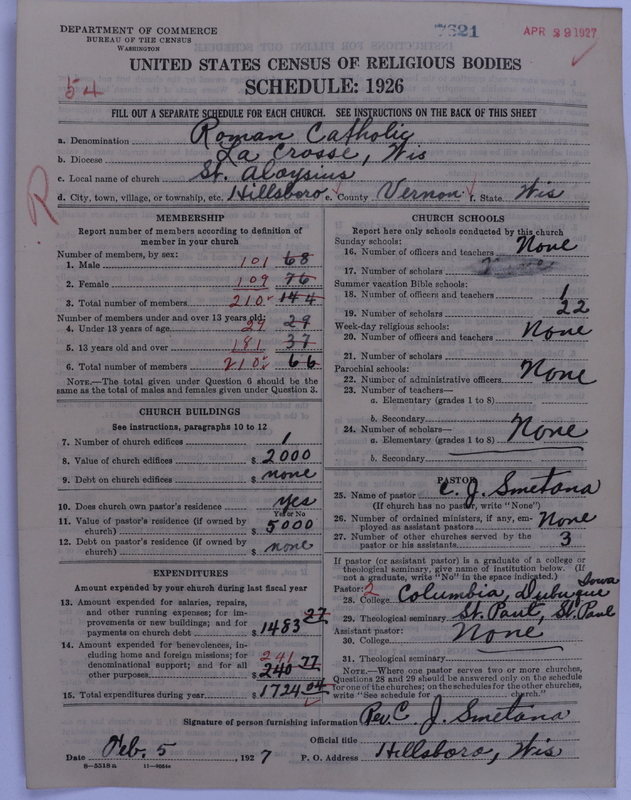 DEPARTMENT OF COMMERCE
BUREAU OF THE CENSUS
WASHINGTON
7621
APR 29 1927
UNITED STATES CENSUS OF RELIGIOUS BODIES
SCHEDULE: 1926
54
FILL OUT A SEPARATE SCHEDULE FOR EACH CHURCH. SEE INSTRUCTIONS ON THE BACK OF THIS SHEET
a. Denomination Roman Catholic
b. Diocese La Crosse, Wis
c. Local name of church St. Aloysius
d. City, town, village, or township, etc. Hillsboro e. County Vernon f. State Wis
R
MEMBERSHIP
Report number of members according to definition of
member in your church
Number of members, by sex:
1. Male 101 68
2. Female 109 76
3. Total number of members 210 144
Number of members under and over 13 years old:
4. Under 13 years of age 29 29
5. 13 years old and over 181 37
6. Total number of members 210 66
NOTE.—The total given under Question 6 should be
same as the total of males and females given under Question 3.
CHURCH BUILDINGS
See instructions, paragraphs 10 to 12
7. Number of church edifices 1
8. Value of church edifices $ 2000
9. Debt on church edifices $ none
10. Does church own pastor's residence yes
Yes or No
11. Value of pastor's residence (if owned by
church) $ 5000
12. Debt on pastor's residence (if owned by
church) $ none
EXPENDITURES
Amount expended by your church during last fiscal year
13. Amount expended for salaries, repairs,
and other running expenses; for im-
provements or new buildings; and for
payments on church debt $ 1483 27
14. Amount expended for benevolences, in-
cluding home and foreign missions; for
denominational support; and for all
other purposes $ 241 240 77
15. Total expenditures during year $ 1724 04
CHURCH SCHOOLS
Report here only schools conducted by this church
Sunday schools:
16. Number of officers and teachers None
17. Number of scholars
Summer vacation Bible schools:
18. Number of officers and teachers 1
19. Number of scholars 22
Week-day religious schools:
20. Number of officers and teachers None
21. Number of scholars
Parochial schools:
22. Number of administrative officers None
23. Number of teachers—
a. Elementary (grades 1 to 8)
b. Secondary
24. Number of scholars—
a. Elementary (grades 1 to 8) None
b. Secondary
PASTOR
25. Name of pastor C. J. Smetana
(If church has no pastor, write "None")
26. Number of ordained ministers, if any, em-
ployed as assistant pastors None
27. Number of other churches served by the
pastor or his assistants 3
If pastor (or assistant pastor) is a graduate of a college or
theological seminary, give name of institution below. (If
not a graduate, write "No" in the space indicated.)
Pastor: 2
28. College Columbia, Dubuque Iowa
29. Theological seminary St. Paul, St. Paul
Assistant pastor:
30. College None
31. Theological seminary
NOTE.—Where one pastor serves two or more churches,
Questions 28 and 29 should be answered only on the schedule
for one of the churches; on the schedules for the other churches,
write "See schedule for church."
Signature of person furnishing information Rev. C. J. Smetana
Official title
Date Feb. 5, 1927 P. O. Address Hillsboro, Wis